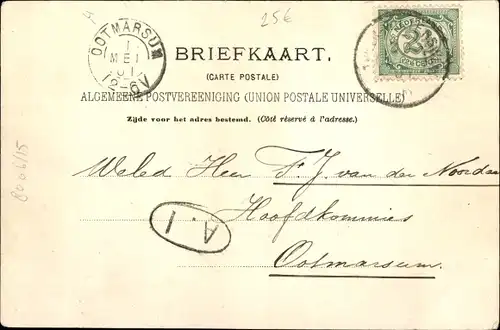 A
25€
OOTMARSUM
1
MEI
01
12-6V
2½
BRIEFKAART.
(CARTE POSTALE)
ALGEMEENE POSTVEREENIGING (UNION POSTALE UNIVERSELLE)
Zijde voor het adres bestemd. (Côté réservé à l'adresse.)
8006/15
Weled Heer F. J. van der
Hoofdkommies
A. I
Ootmarsum.